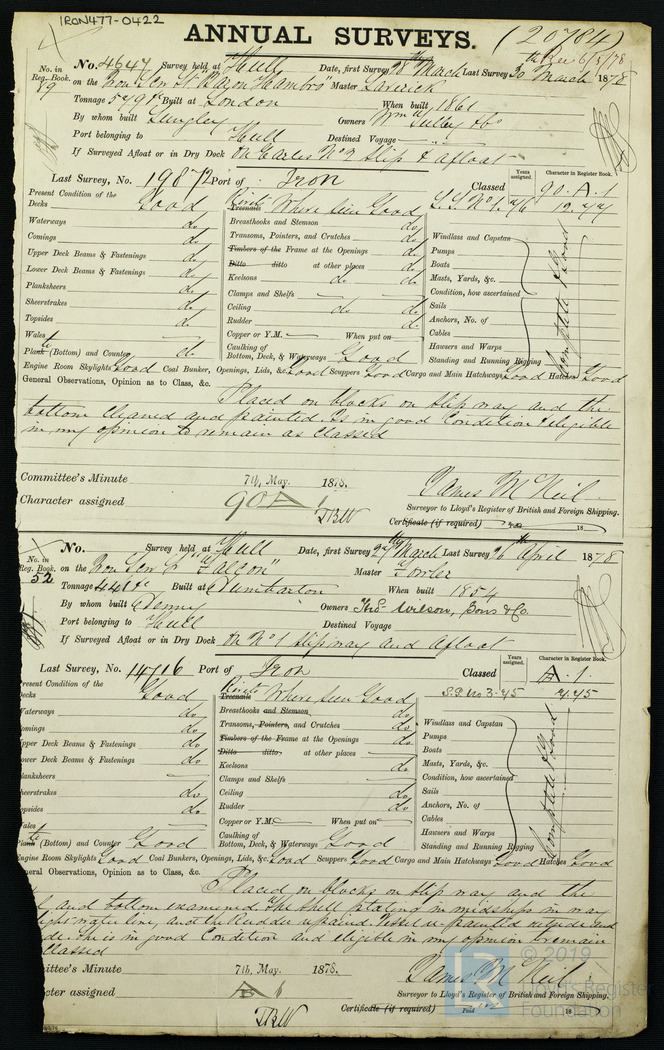 IRON477-0422
ANNUAL SURVEYS. (20784)
Rec 6/5/78
No. in Reg. Book. No. 4647 Survey held at Hull Date, first Survey 28th March Last Survey 30th March 1878
89 on the Iron Scr St "Baron Hambro" Master Laverick
Tonnage 579 Built at London When built 1861
By whom built Langley Owners Wm Gilley & Co
Port belonging to Hull Destined Voyage
If Surveyed Afloat or in Dry Dock On Earles No 2 Slip & afloat
Last Survey, No. 19872 Port of Iron Classed Years assigned. Character in Register Book.
90. A. 1
Present Condition of the
Decks Good Rivets Treenails Where seen Good S.S. No 1. 7/6 12.77
Waterways do Breasthooks and Stemson do Windlass and Capstan
Comings do Transoms, Pointers, and Crutches do Pumps
Upper Deck Beams & Fastenings do Timbers of the Frame at the Openings do Boats
Lower Deck Beams & Fastenings do Ditto ditto at other places do Masts, Yards, &c.
Planksheers do Keelsons do do Condition, how ascertained
Sheerstrakes do Clamps and Shelfs Sails
Topsides do Ceiling do do Anchors, No. of
Wales Rudder do Cables
Copper or Y.M. When put on Hawsers and Warps
Plate (Bottom) and Counter do Caulking of Bottom, Deck, & Waterways Good Standing and Running Rigging
Complete & Good
Engine Room Skylights Good Coal Bunker, Openings, Lids, &c. Good Scuppers Good Cargo and Main Hatchways Good Hatches Good
General Observations, Opinion as to Class, &c.
Placed on blocks on slip way and the
bottom cleaned and painted. Is in good Condition & eligible
in my opinion to remain as classed
Committee's Minute 7th May. 1878. James McNeil
Character assigned 90 A 1 Surveyor to Lloyd's Register of British and Foreign Shipping.
TBW Certificate (if required) 18
No. in Reg. Book. No. Survey held at Hull Date, first Survey 27th March Last Survey 26th April 1878
52 on the Iron Scr St "Falcon" Master Fowler
Tonnage 441 Built at Dumbarton When built 1854
By whom built Denny Owners Thos Wilson, Sons & Co.
Port belonging to Hull Destined Voyage
If Surveyed Afloat or in Dry Dock On No 1 slipway and Afloat
Last Survey, No. 14716 Port of Iron Classed Years assigned. Character in Register Book.
A. 1
Present Condition of the
Decks Good Rivets Treenails Where seen Good S.S. No 3-75 4.75
Waterways do Breasthooks and Stemson do Windlass and Capstan
Comings do Transoms, Pointers, and Crutches do Pumps
Upper Deck Beams & Fastenings do Timbers of the Frame at the Openings do Boats
Lower Deck Beams & Fastenings do Ditto ditto at other places Masts, Yards, &c.
Planksheers Keelsons do Condition, how ascertained
Sheerstrakes do Clamps and Shelfs Sails
Topsides do Ceiling do Anchors, No. of
Wales Rudder do Cables
Copper or Y.M. When put on Hawsers and Warps
Plate (Bottom) and Counter Good Caulking of Bottom, Deck, & Waterways Good Standing and Running Rigging
Complete & Good
Engine Room Skylights Good Coal Bunkers, Openings, Lids, &c. Good Scuppers Good Cargo and Main Hatchways Good Hatches Good
General Observations, Opinion as to Class, &c.
Placed on blocks on slip way and the
and bottom examined. The shell plating in midships in way
light water line, and the Rudder repaired. Vessel re painted outside and
She is in good Condition and eligible in my opinion to remain
classed
Committee's Minute 7th May. 1878. James McNeil
Character assigned A 1 Surveyor to Lloyd's Register of British and Foreign Shipping.
TBW Certificate (if required) Paid 18
© 2019
Lloyd's Register
Foundation